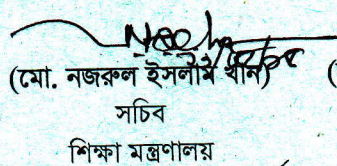 (মো. নজরুল ইসলাম খান)
সচিব
শিক্ষা মন্ত্রণালয়